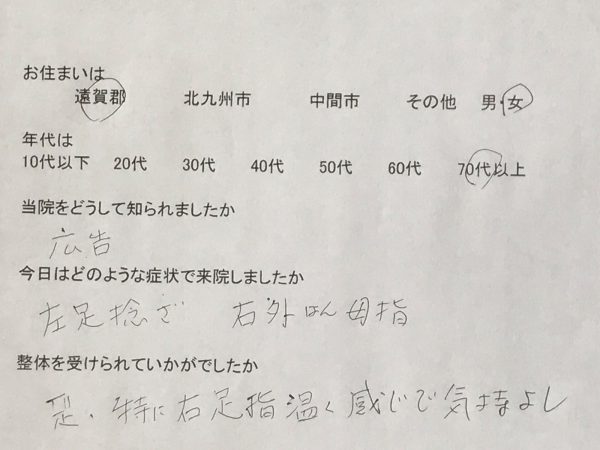 お住まいは
遠賀郡 北九州市 中間市 その他 男・女
年代は
10代以下 20代 30代 40代 50代 60代 70代以上
当院をどうして知られましたか
広告
今日はどのような症状で来院しましたか
左足捻ざ 右外はん母指
整体を受けられていかがでしたか
足、特に右足指温く感じで気持よし